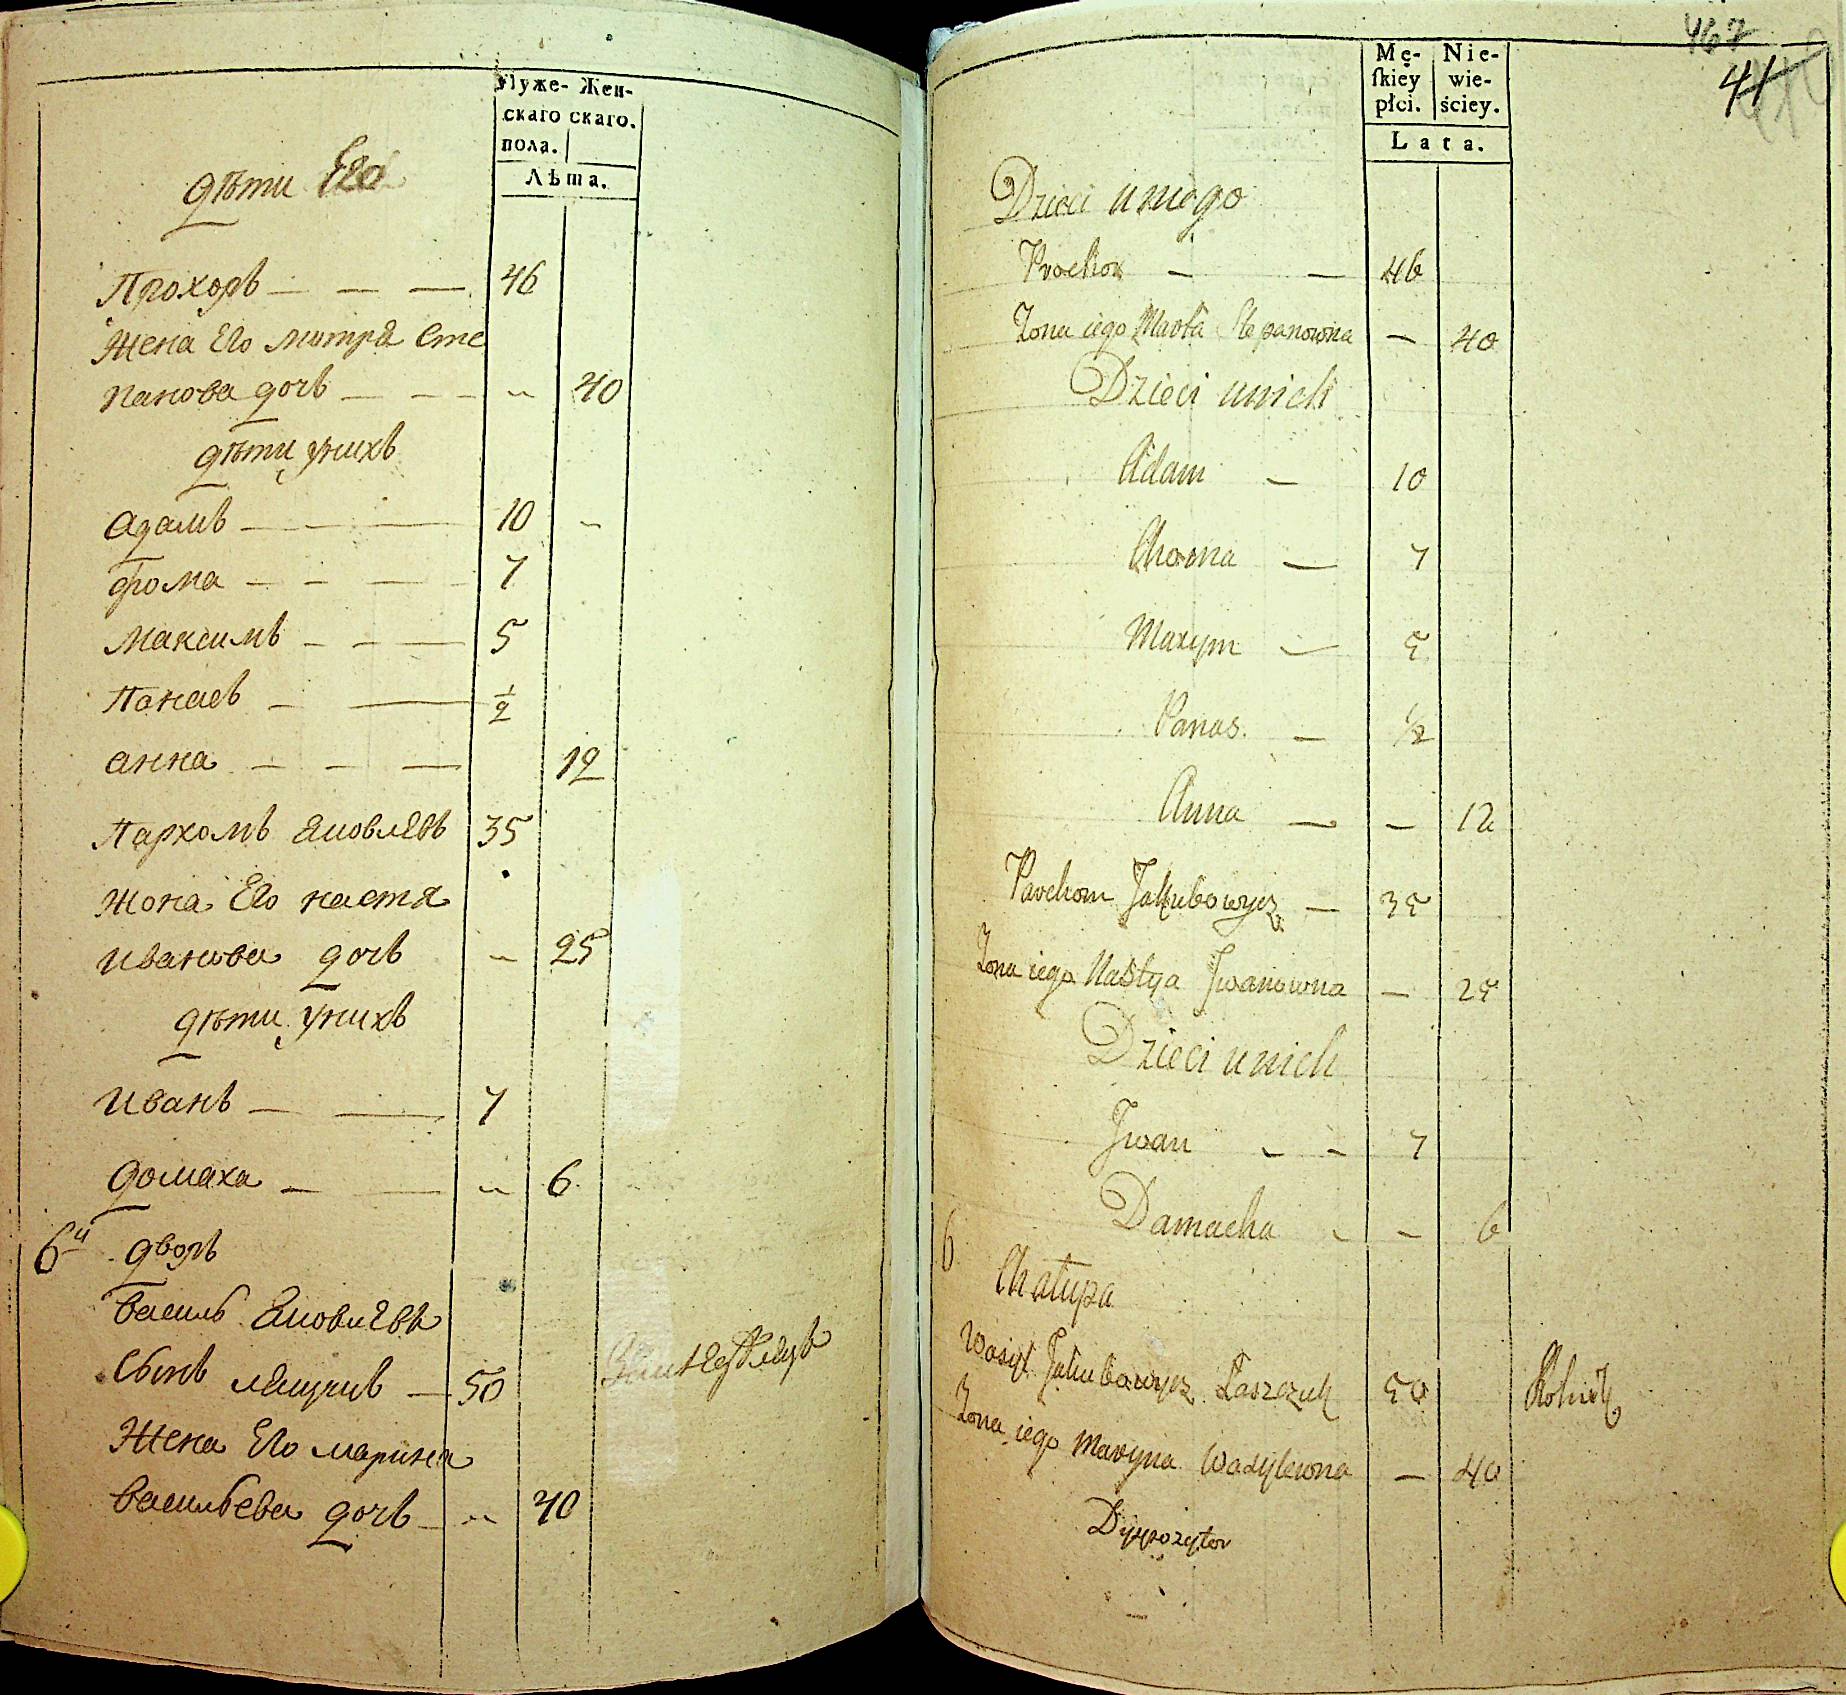 Муже- Жен-
скаго скаго.
пола.
Лѣта.
дѣти Его
Прохоръ — — — 46
Жена Его Мотря Сте
панова дочь — — — „ 40
дѣти унихъ
Адамъ — — — 10 „
Фома — — — — 7
Максимъ — — — 5
Панасъ — — 1/2
Анна — — — 12
Пархомъ Яковлевъ 35
Жона Его настя
Иванова дочь „ 25
дѣти унихъ
Иванъ — — 7
Домаха — — „ 6
6й дворъ
Василь Яковлевъ
Сынъ лащукъ — 50
Жена Его марина
Васильева дочь — „ 40
467
41
Mę- Nie-
ſkiey wie-
płci. ściey.
Lata.
Dzieci uniego
Prochor — — 46
Zona iego Marta Stepanowna — 40
Dzieci unich
Adam — 10
Choma — 7
Maxym — 5
Panas. — 1/2
Anna — — 12
Parchom Jakubowycz — 35
Zona iego Nastya Jwanowna — 25
Dzieci unich
Jwan - - 7
Damacha - - 6
6 Chałupa
Wasyl Jakubowycz Łaszczuk 50 Rolnik
Zona iego Maryna Wasylewna — 40